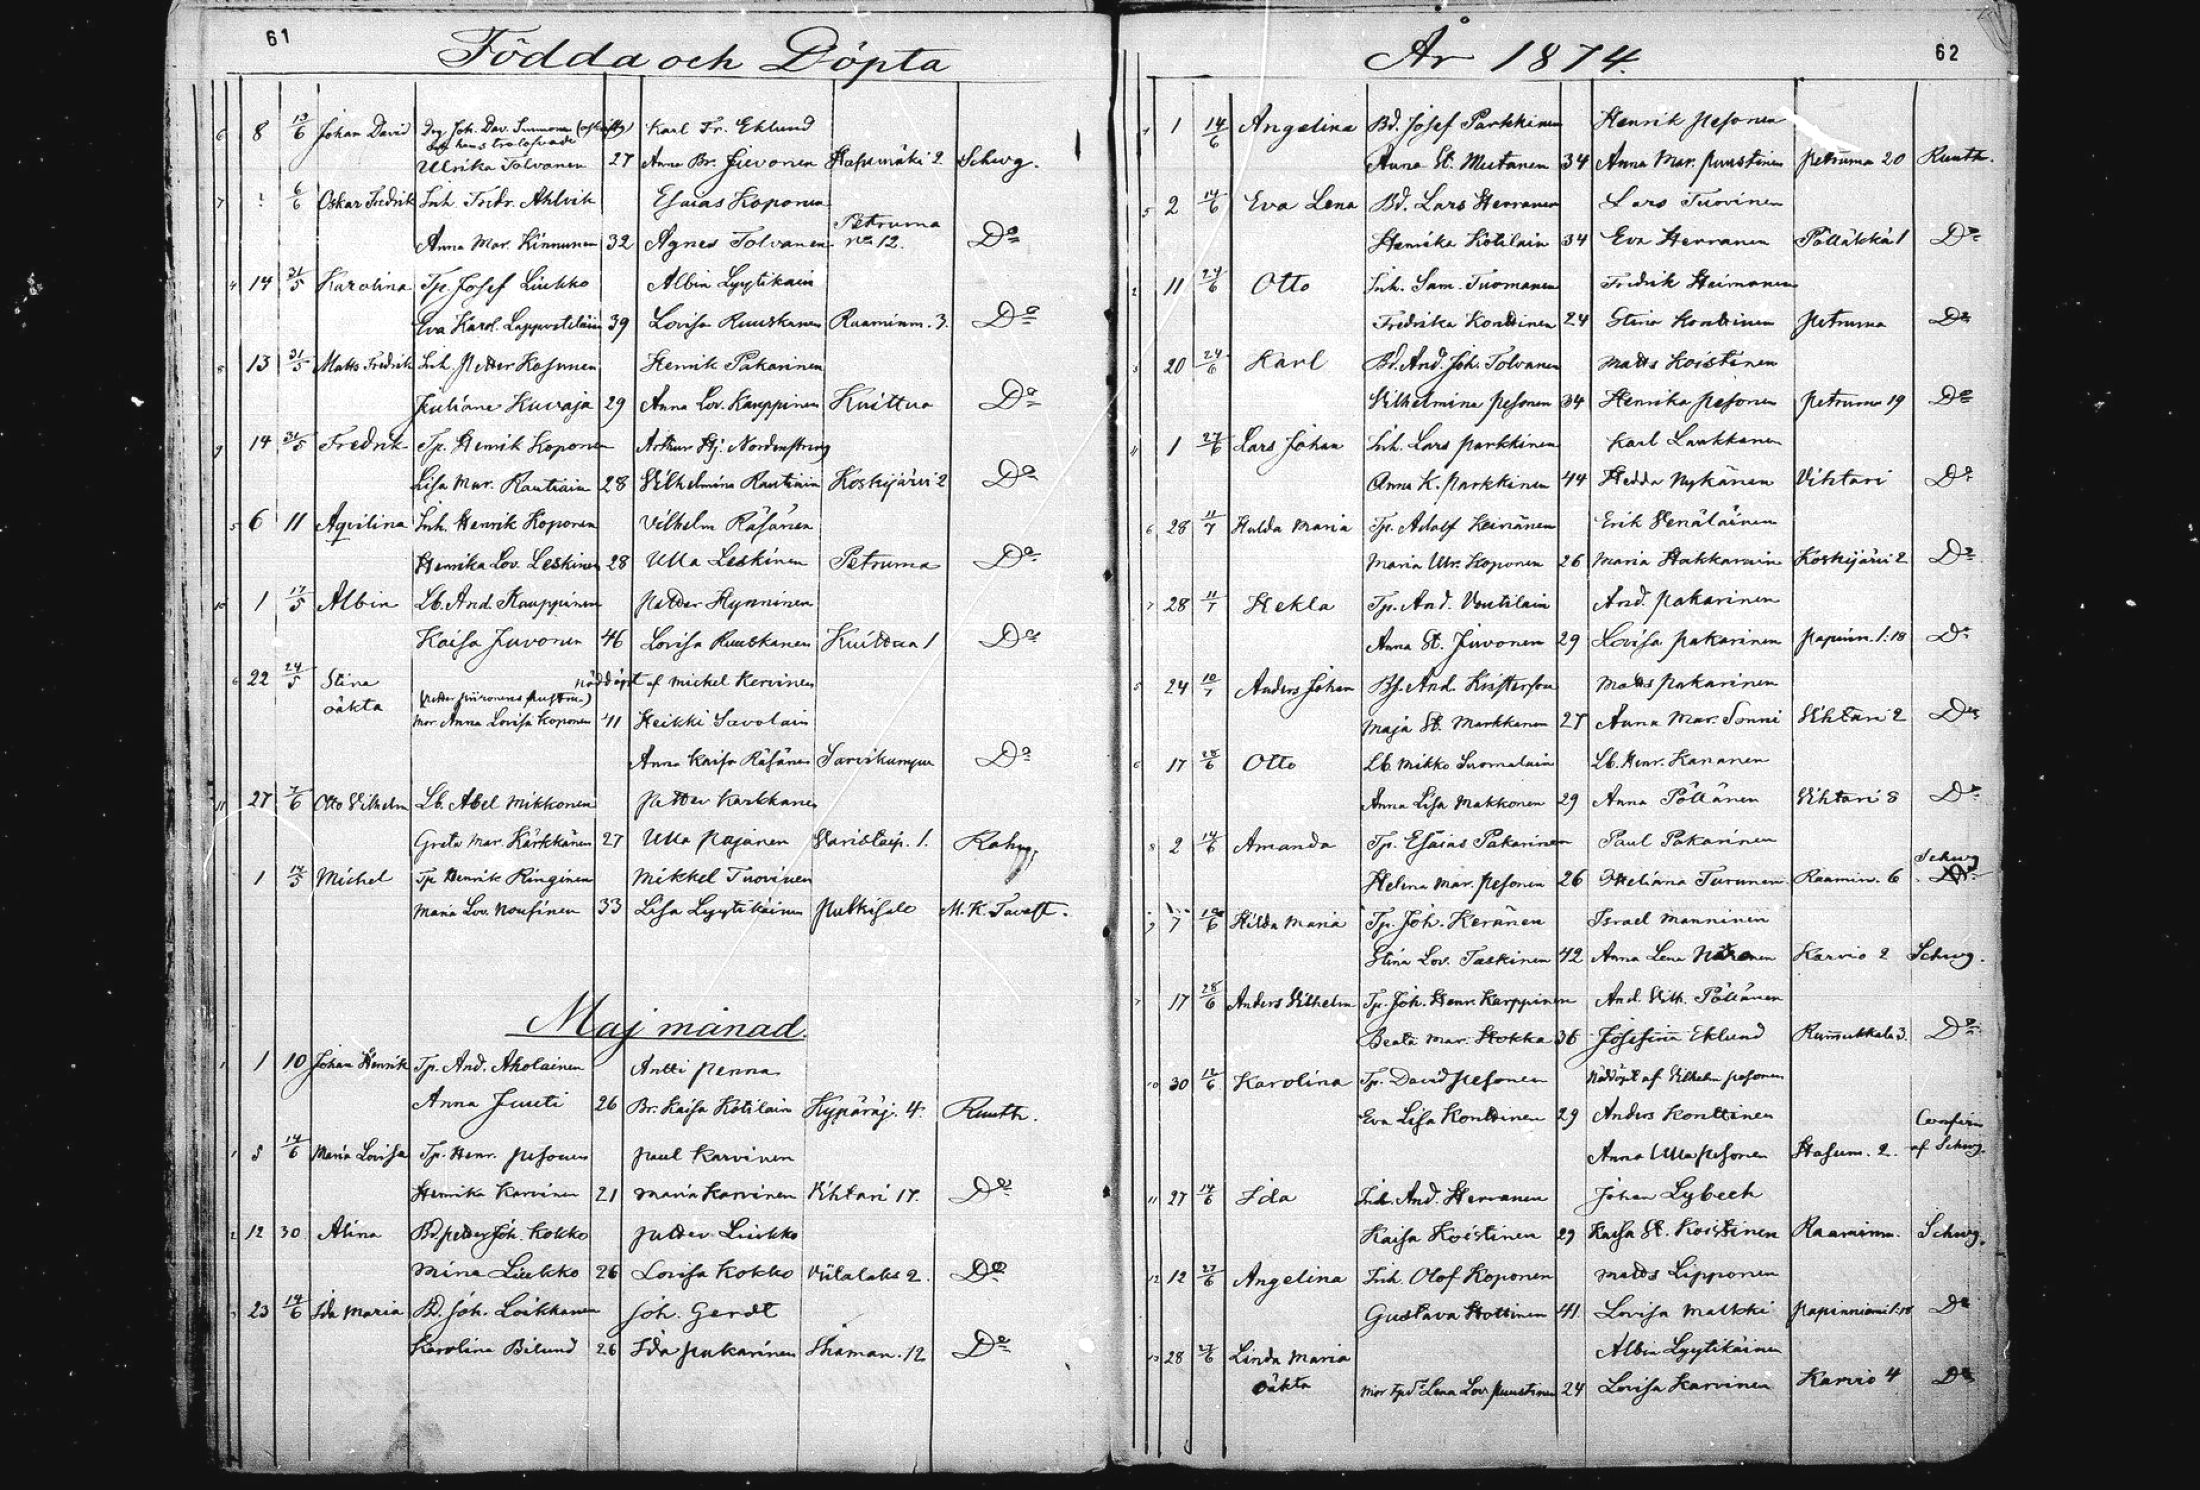 61
Födda och Döpta
6 8 13/6 Johan David Drg Joh. Dav. Karl Fr. Eklund
Ulrika Tolvanen 27 Anna Br. Juvonen Hasumäki 2. Schwg.
7 6/6 Oskar Fredrik Inh. Fredr. Ahlvik Esaias Koponen
Anna Mar. Kinnunen 32 Agnes Tolvanen Petruma No 12. Do
4 14 31/5 Karolina Tp. Josef Liukko Albin Lyytikäin
Eva Karol. 39 Lovisa Ruuskanen Raaminm. 3. Do
8 13 31/5 Matts Fredrik Inh. Petter Kosunen Henrik Pakarinen
Juliana Kuvaja 29 Anna Lov. Kauppinen Kuittua Do
9 14 31/5 Fredrik Tp. Henrik Koponen Arthur Hj. Nordenstreng
Lisa Mar. Rautiain 28 Vilhelmina Rautiain Koskijärvi 2 Do
5 6 11 Aqvilina Inh. Henrik Koponen Vilhelm Räsänen
Henrika Lov. Leskinen 28 Ulla Leskinen Petruma Do
10 1 17/5 Albin Lb. And. Kauppinen Petter Hynninen
Kaisa Juvonen 46 Lovisa Ruuskanen Kuittua 1 Do
6 22 24/5 Stina nöddöpt af Michel Kervinen
oäkta (Petter Piironens hustru)
Mor Anna Lovisa Koponen 41 Heikki Savolain
Anna Kaisa Räsänen Sarvikumpu Do
11 27 7/6 Otto Vilhelm Lb. Abel Mikkonen Petter Karkkanen
Greta Mar. Kärkkänen 27 Ulla Pajanen Varistaip. 1.
1 14/5 Michel Tp Henrik Ringinen Mikkel Tuovinen
Maria Lov. Nousinen 33 Lisa Lyytikäinen Putkisalo M. K. Tavast.
Maj månad.
1 1 10 Johan Henrik Tp. And. Aholainen Antti Penna
Anna Juuti 26 Br. Kaisa Kotilain Hypäräj. 4. Ruuth.
1 5 14/6 Maria Lovisa Tp. Henr. Pesonen Paul Karvinen
Henrika Karvinen 21 Maria Karvinen Vihtari 17. Do
2 12 30 Alina Bd. Petter Joh. Kokko Petter Liukko
Mina Liukko 26 Lovisa Kokko Viilalaks 2. Do
3 23 14/6 Ida Maria Bd. Joh. Loikkanen Joh. Gerdt
Karolina Bilund 26 Ida Pakarinen 12 Do
År 1874.
62
4 1 14/6 Angelina Bd. Josef Parkkinen Henrik Pesonen
Anna St. Mutanen 34 Anna Mar. Puustinen Petruma 20 Ruuth.
5 2 14/6 Eva Lena Bd. Lars Herranen Lars Tuovinen
Henrika Kotilain 34 Eva Herranen Pölläkkä 1 Do
2 11 24/6 Otto Inh. Sam. Tuomanen Fredrik Heimonen
Fredrika Konttinen 24 Stina Konttinen Petruma Do
3 20 24/6 Karl Bd. And. Joh. Tolvanen Matts Koistinen
Vilhelmina Pesonen 34 Henrika Pesonen Petruma 19 Do
4 1 27/6 Lars Johan Inh. Lars Parkkinen Karl Laukkanen
Anna K. Parkkinen 44 Hedda Nykänen Vihtari Do
6 28 11/7 Hulda Maria Tp. Adolf Keinänen Erik Venäläinen
Maria Ulr. Koponen 26 Maria Hakkarain Koskijärvi 2 Do
7 28 11/7 Hekla Tp. And. Voutilain And. Pakarinen
Anna St. Juvonen 29 Lovisa Pakarinen Papinn. 1:18 Do
5 24 10/7 Anders Johan Bs. And. Kristersson Matts Pakarinen
Maja St. Markkanen 27 Anna Mar. Sonni Vihtari 2 Do
6 17 28/6 Otto Lb. Mikko Suomalain Lb. Henr. Kananen
Anna Lisa Makkonen 29 Anna Pöllänen Vihtari 8 Do
8 2 14/6 Amanda Tp. Esaias Pakarinen Paul Pakarinen
Helena Mar. Pesonen 26 Heliana Turunen Raamin. 6 Schwg
9 7 Hilda Maria Tp. Joh. Keränen Israel Manninen
Stina Lov. Taskinen 42 Anna Lena Karvio 2 Schwg.
7 17 28/6 Anders Vilhelm Tp. Joh. Henr. Karppinen And. Vilh. Pöllänen
Beata Mar. Hokka 36 Josefina Eklund Rummukkala 3. Do
10 30 12/6 Karolina Tp. David Pesonen Nöddöpt af Vilhelm Pesonen
Eva Lisa Konttinen 29 Anders Konttinen Confirm
Anna Ulla Pesonen Hasum. 2. af Schwg.
11 27 14/6 Ida Inh. And. Herranen Johan Lybeck
Kaisa Koistinen 29 Kaisa St. Koistinen Raaminm. Schwg.
12 12 27/6 Angelina Inh. Olof Koponen Matts Lipponen
Gustava Hottinen 41 Lovisa Matkki Papinniemi 1:18 Do
13 28 Linda Maria Albin Lyytikäinen
oäkta Mor Lena Lov. Puustinen 24 Lovisa Karvinen Karvio 4 Do